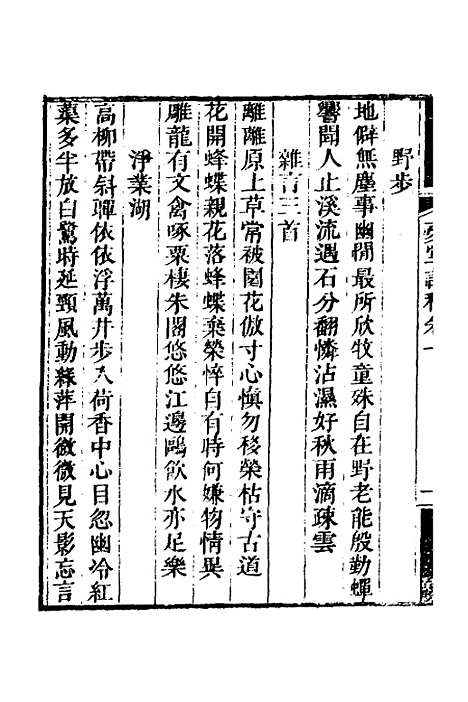 野步
地僻無塵事幽閒最所欣牧童殊自在野老能殷勤蟬
響聞人止溪流遇石分翻憐沾濕好秋雨滴疎雲
雜言三首
離離原上草常被園花倣寸心慎勿移榮枯守古道
花開蜂蝶親花落蜂蝶棄榮悴自有時何嫌物情異
雕龍有文禽啄粟棲朱閣悠悠江邊鷗飲水亦足樂
淨業湖
高柳帶斜暉依依浮萬井步入荷香中心目忽幽冷紅
葉多半放白鷺時延頸風動綠萍開微微見天影忘言
詩稿卷一